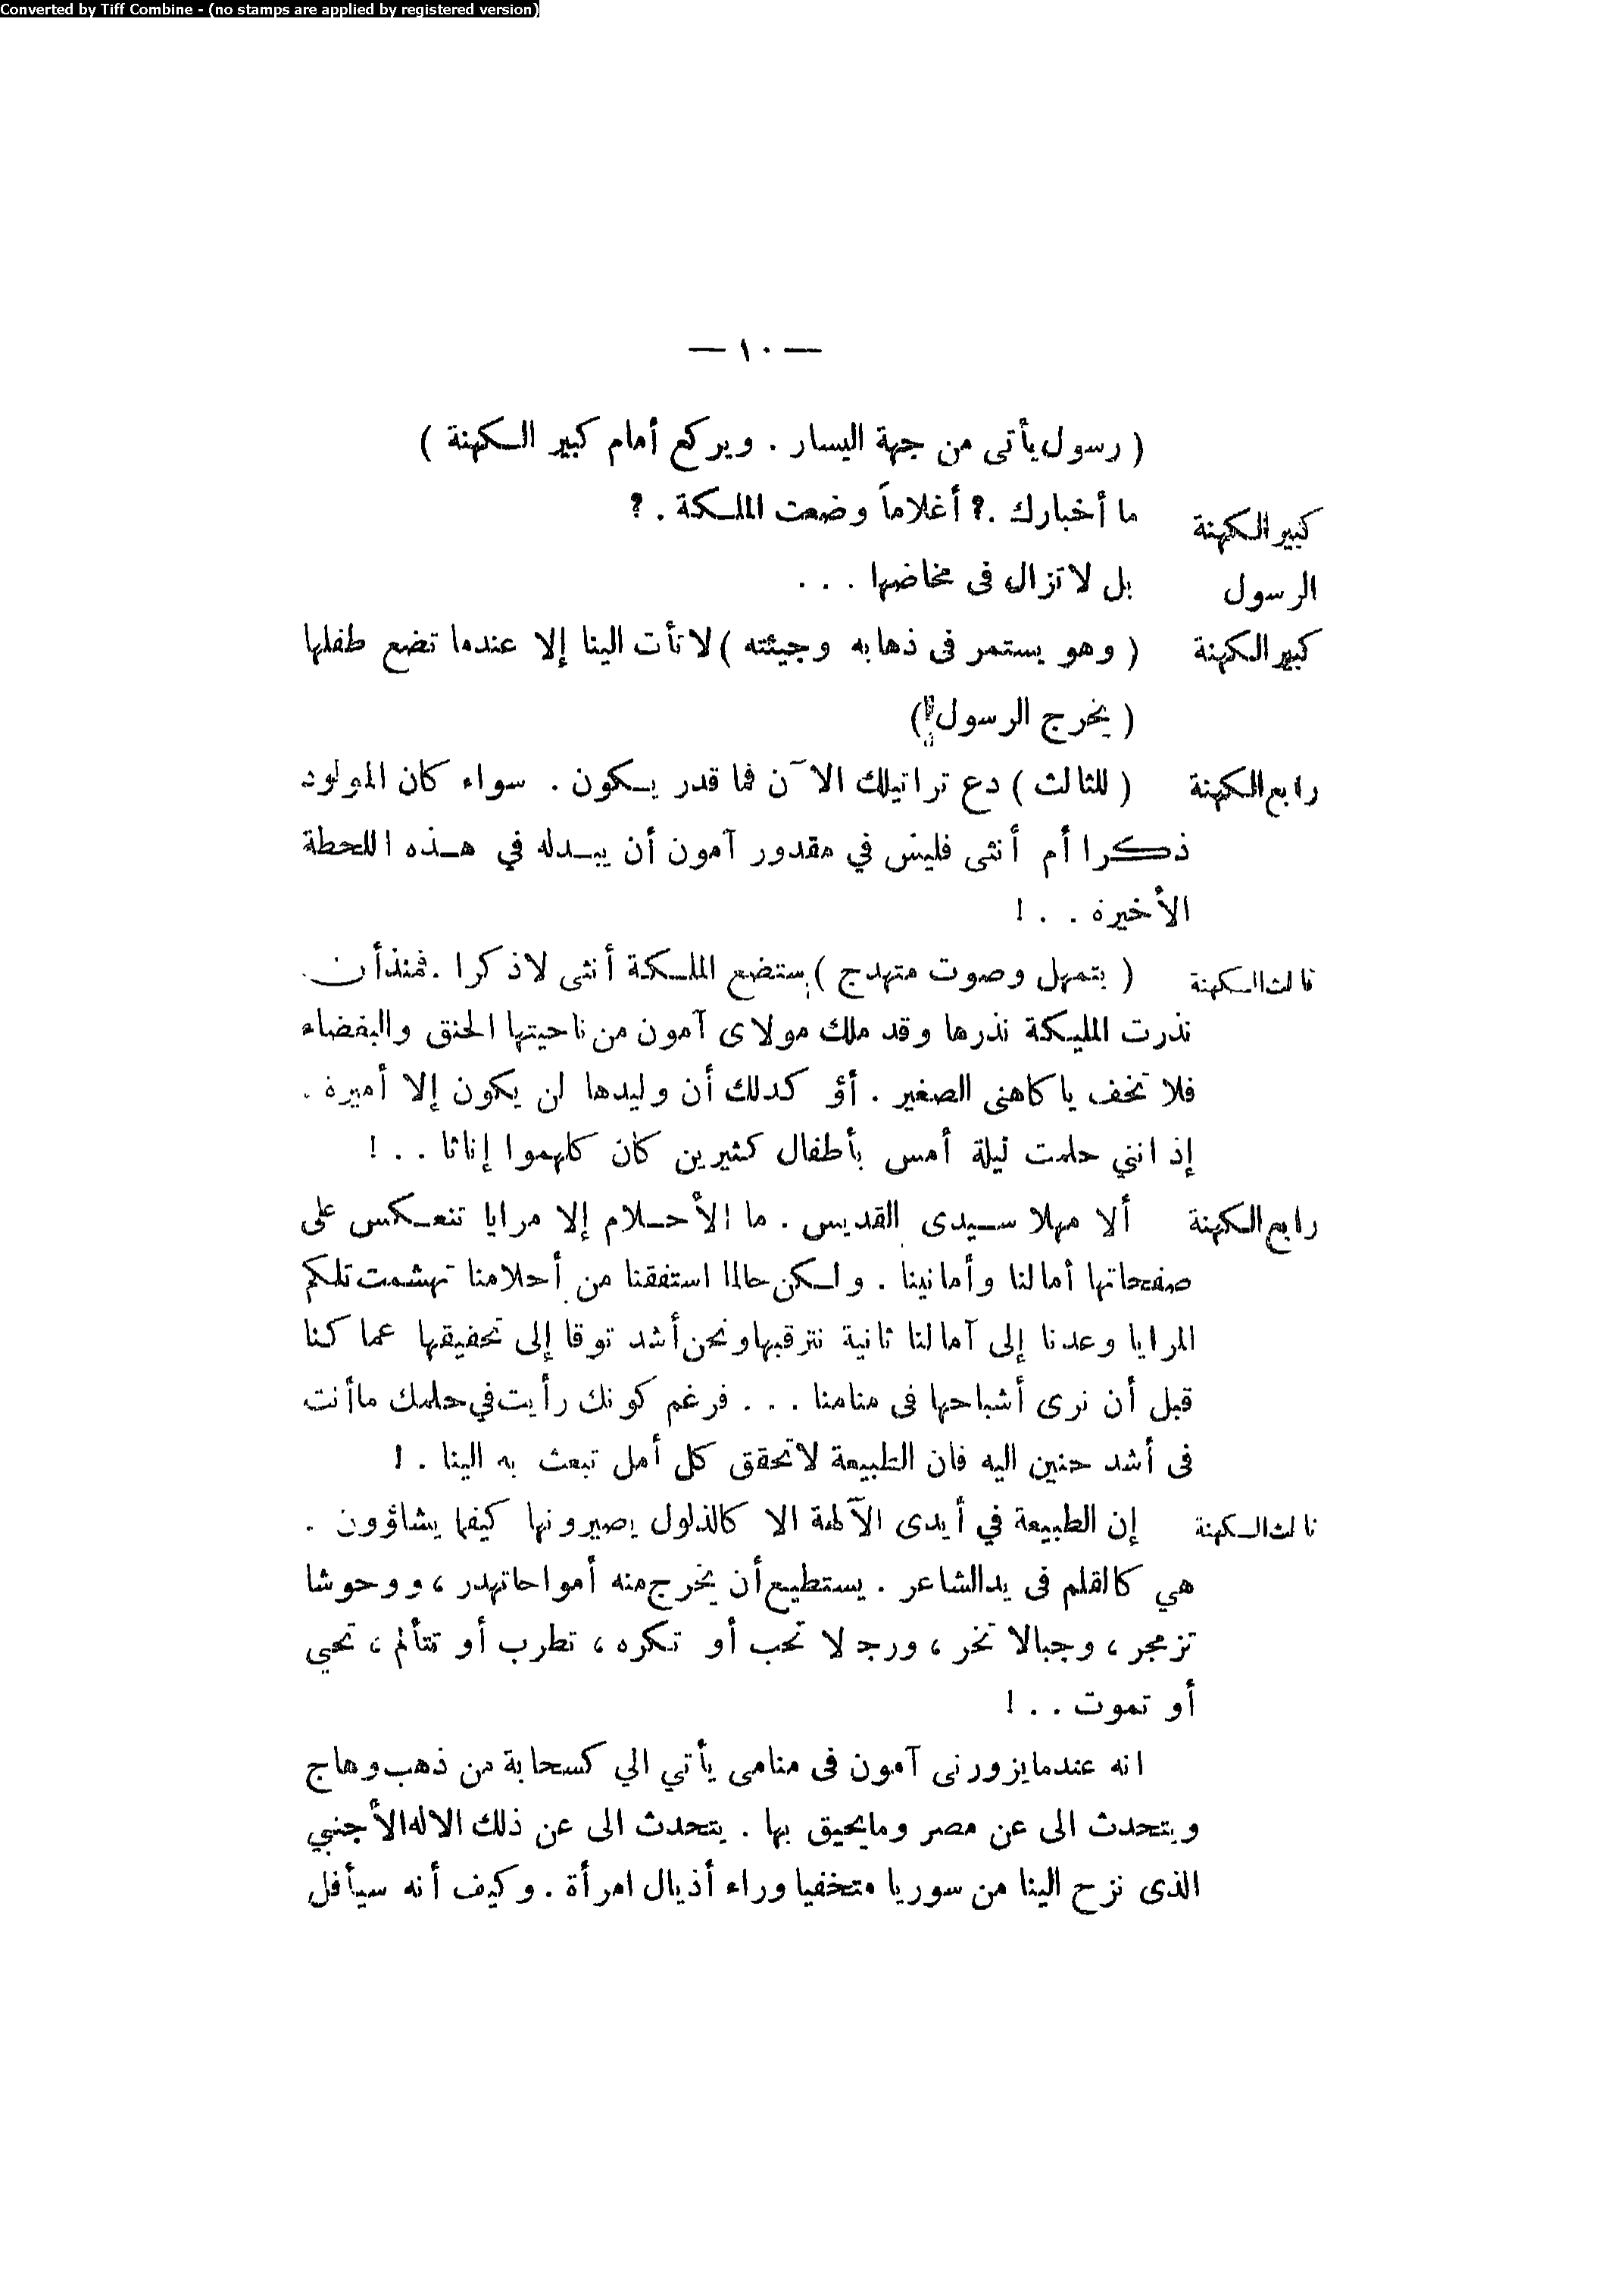 Converted by Tiff Combine - (no stamps are applied by registered version)
— ١٠ —
( رسول يأتى من جهة اليسار . ويركع أمام كبير الكهنة )
كبير الكهنة ما أخبارك .؟ أغلاماً وضعت الملكة . ؟
الرسول بل لا تزال فى مخاضها . . .
كبير الكهنة ( وهو يستمر فى ذهابه وجيئته ) لا تأت الينا إلا عندما تضع طفلها
( يخرج الرسول )
رابع الكهنة ( للثالث ) دع تراتيلك الآن فما قدر يكون . سواء كان المولود
ذكرا أم أنثى فليس في مقدور آمون أن يبدله في هذه اللحظة
الأخيرة . . !
ثالث الكهنة ( بتمهل وصوت متهدج ) ستضع الملكة أنثى لا ذكرا . فمنذ أن
نذرت المليكة نذرها وقد ملك مولاى آمون من ناحيتها الحنق والبغضاء
فلا تخف يا كاهنى الصغير . أؤكد لك أن وليدها لن يكون إلا أميرة .
إذ انني حلمت ليلة أمس بأطفال كثيرين كان كلهموا إناثا . . !
رابع الكهنة ألا مهلا سيدى القديس . ما الأحلام إلا مرايا تنعكس على
صفحاتها أمالنا وأمانينا . ولكن حالما استفقنا من أحلامنا تهشمت تلكم
المرايا وعدنا إلى آمالنا ثانية نترقبها ونحن أشد توقا إلى تحقيقها عما كنا
قبل أن نرى أشباحها فى منامنا . . . فرغم كونك رأيت في حلمك ما أنت
فى أشد حنين اليه فان الطبيعة لا تحقق كل أمل تبعث به الينا . !
ثالث الكهنة إن الطبيعة في أيدى الآلهة الا كالذلول يصيرونها كيفما يشاؤون .
هي كالقلم فى يد الشاعر . يستطيع أن يخرج منه أمواحا تهدر ، ووحوشا
تزمجر ، وجبالا تخر ، ورجلا تحب أو تكره ، تطرب أو تتألم ، تحيي
أو تموت . . !
انه عندما يزورنى آمون فى منامى يأتي الي كسحابة من ذهب وهاج
ويتحدث الى عن مصر وما يحيق بها . يتحدث الى عن ذلك الاله الأجنبي
الذى نزح الينا من سوريا متخفيا وراء أذيال امرأة . وكيف أنه سيأفل